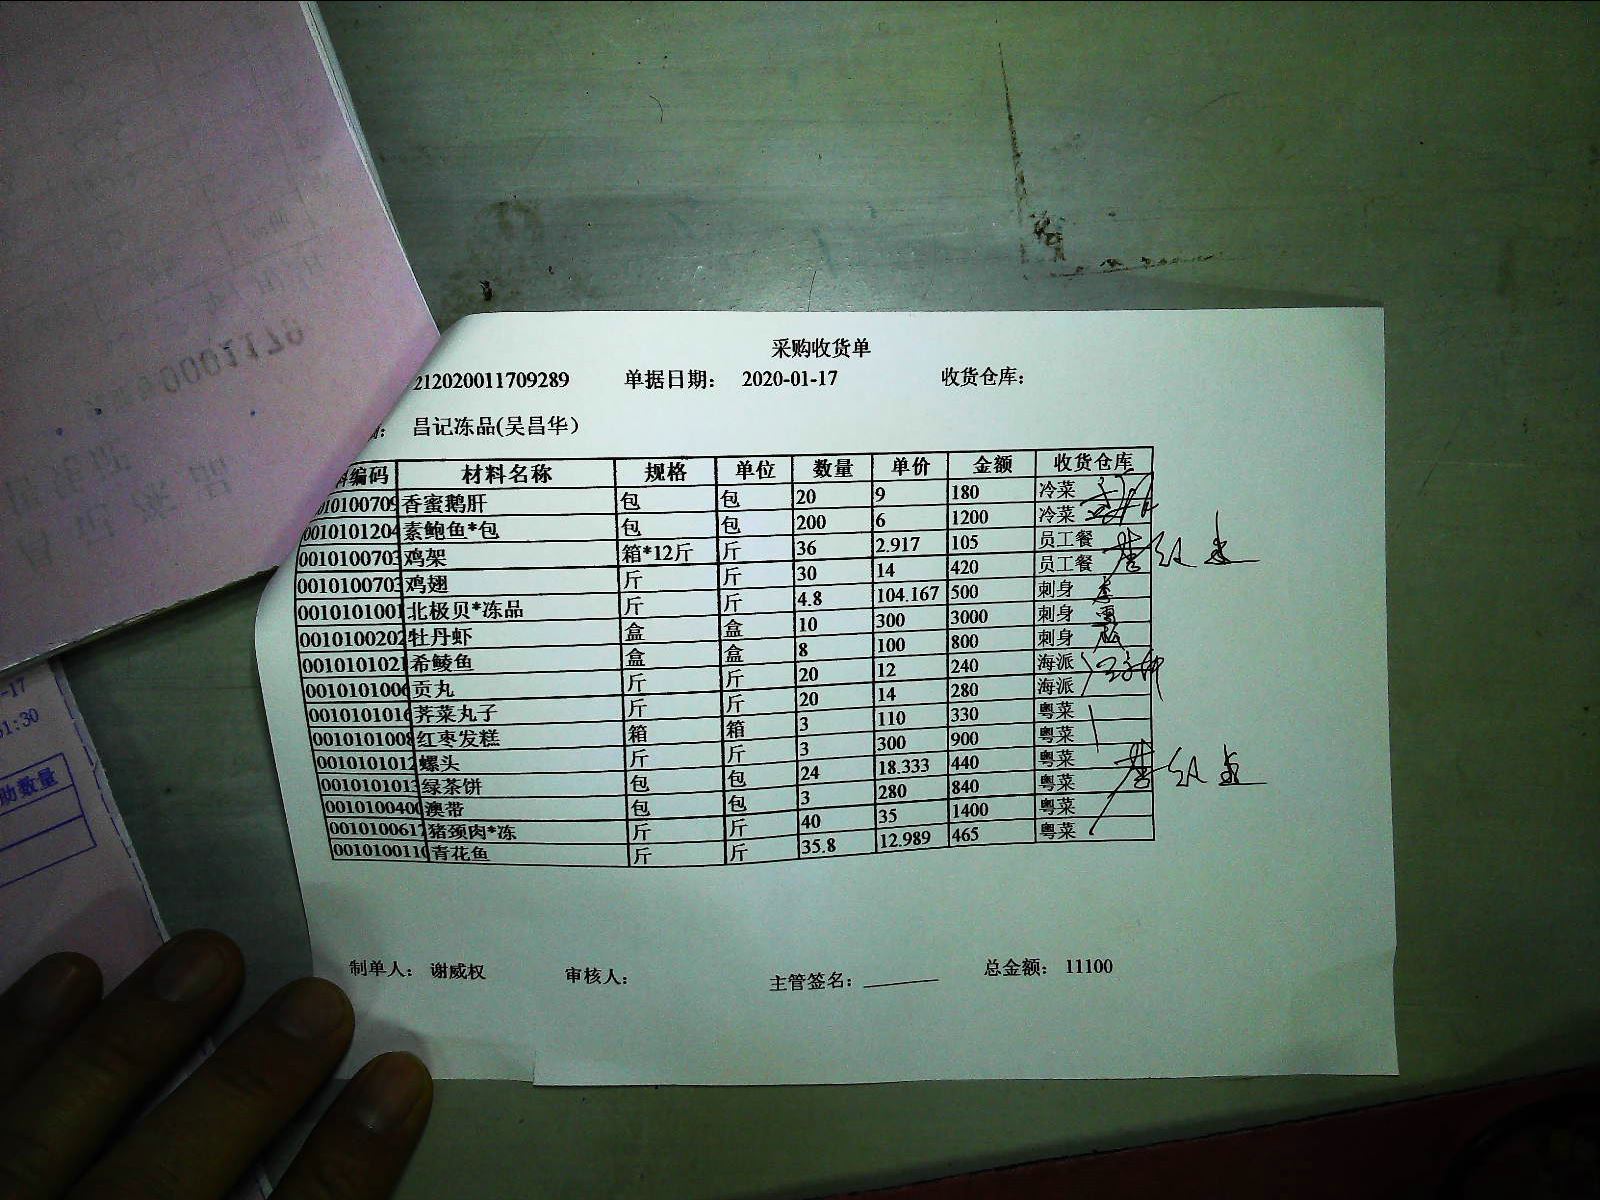 采购收货单
212020011709289 单据日期： 2020-01-17 收货仓库：
昌记冻品(吴昌华)
编码 材料名称 规格 单位 数量 单价 金额 收货仓库
010100709 香蜜鹅肝 包 包 20 9 180 冷菜
0010101204 素鲍鱼*包 包 包 200 6 1200 冷菜
0010100703 鸡架 箱*12斤 斤 36 2.917 105 员工餐
0010100703 鸡翅 斤 斤 30 14 420 员工餐
0010101001 北极贝*冻品 斤 斤 4.8 104.167 500 刺身
0010100202 牡丹虾 盒 盒 10 300 3000 刺身
001010102 希鲮鱼 盒 盒 8 100 800 刺身
001010100 贡丸 斤 斤 20 12 240 海派
001010101 荠菜丸子 斤 斤 20 14 280 海派
0010101008 红枣发糕 箱 箱 3 110 330 粤菜
001010101 螺头 斤 斤 3 300 900 粤菜
001010101 绿茶饼 包 包 24 18.333 440 粤菜
001010040 澳带 包 包 3 280 840 粤菜
001010061 猪颈肉*冻 斤 斤 40 35 1400 粤菜
001010011 青花鱼 斤 斤 35.8 12.989 465 粤菜
制单人： 谢威权 审核人： 主管签名： 总金额： 11100
-17
51:30
助数量
0001179